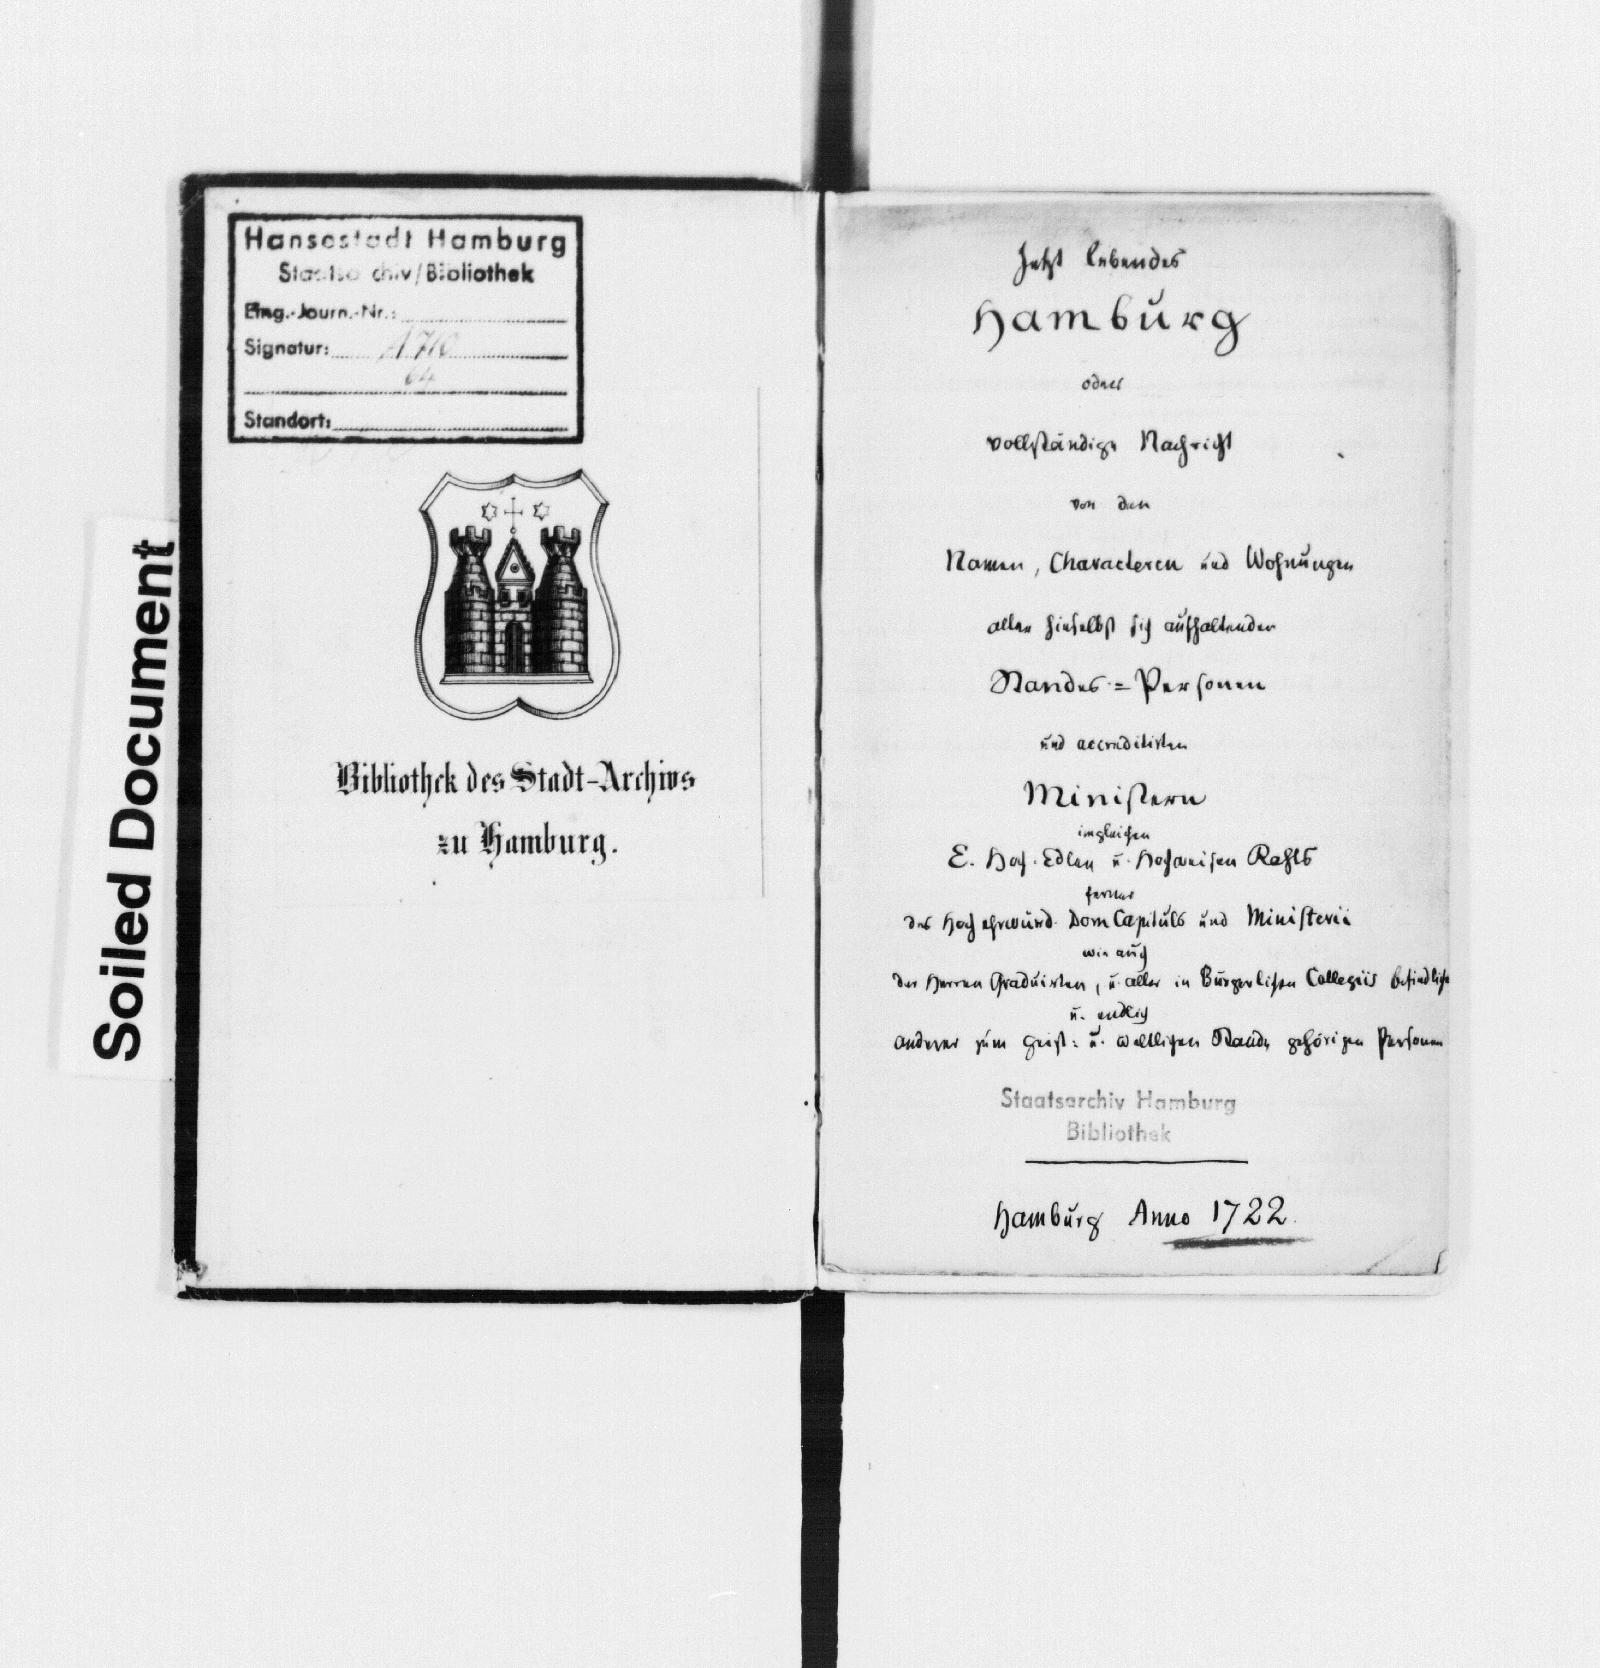 Soiled Document
Hansestadt Hamburg
Staatsarchiv/Bibliothek
Eing.-Journ.-Nr.:
Signatur: A 710
64
Standort:
Bibliothek des Stadt-Archivs
zu Hamburg.
Jetzt lebendes
Hamburg
oder
vollständige Nachricht
von den
Namen, Characteren und Wohnungen
aller hieselbst sich aufhaltender
Standes=Personen
und accreditirten
Ministern
imgleichen
E. Hoch-Edlen u. Hochweisen Rahts
ferner
des Hochehrwürd. Dom Capituls und Ministerii
wie auch
der Herren Graduirten, u. aller in Bürgerlichen Collegiis befindliche
u. endlich
anderer zum geist: u. weltlichen Stande gehörigen Personen
Staatsarchiv Hamburg
Bibliothek
Hamburg Anno 1722.